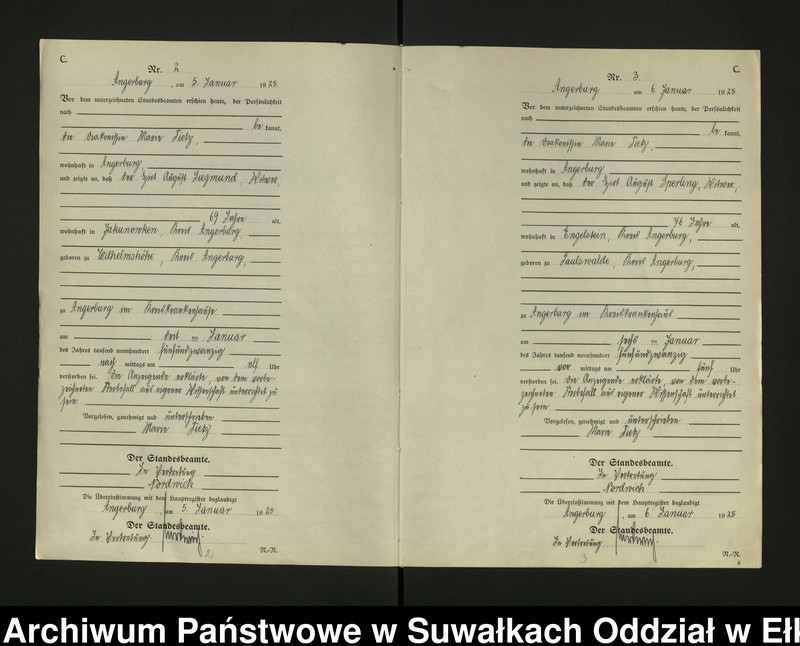 C.
Nr. 2
Angerburg, am 5. Januar 1925
Vor dem unterzeichneten Standesbeamten erschien heute, der Persönlichkeit
nach
be kannt,
die Diakonissin Marie Tietz,
wohnhaft in Angerburg,
und zeigte an, daß der Wirt August Siegmund, Witwer,
69 Jahre alt,
wohnhaft in Jakunowken, Kreis Angerburg,
geboren zu Wilhelmshöhe, Kreis Angerburg,
zu Angerburg im Kreiskrankenhause
am drei ten Januar
des Jahres tausend neunhundert fünfundzwanzig
nach mittags um elf Uhr
verstorben sei. Die Anzeigende erklärte, von dem vorbe-
zeichneten Sterbefall aus eigener Wissenschaft unterrichtet zu
sein.
Vorgelesen, genehmigt und unterschrieben
Marie Tietz
Der Standesbeamte.
In Vertretung
Nordwich
Die Übereinstimmung mit dem Hauptregister beglaubigt
Angerburg, am 5. Januar 1925
Der Standesbeamte.
In Vertretung:
2
N.-N.
C.
Nr. 3
Angerburg am 6. Januar 1925
Vor dem unterzeichneten Standesbeamten erschien heute, der Persönlichkeit
nach
be kannt,
die Diakonissin Marie Tietz,
wohnhaft in Angerburg
und zeigte an, daß der Wirt August Sperling, Witwer,
76 Jahre alt,
wohnhaft in Engelstein, Kreis Angerburg,
geboren zu Paulswalde, Kreis Angerburg,
zu Angerburg im Kreiskrankenhaus
am sechs ten Januar
des Jahres tausend neunhundert fünfundzwanzig
vor mittags um fünf Uhr
verstorben sei. Die Anzeigende erklärte, von dem vorbe-
zeichneten Sterbefall aus eigener Wissenschaft unterrichtet
zu sein
Vorgelesen, genehmigt und unterschrieben
Marie Tietz
Der Standesbeamte.
In Vertretung
Nordwich
Die Übereinstimmung mit dem Hauptregister beglaubigt
Angerburg, am 6. Januar 1925
Der Standesbeamte.
In Vertretung:
3
N.-N.
Archiwum Państwowe w Suwałkach Oddział w Ełk